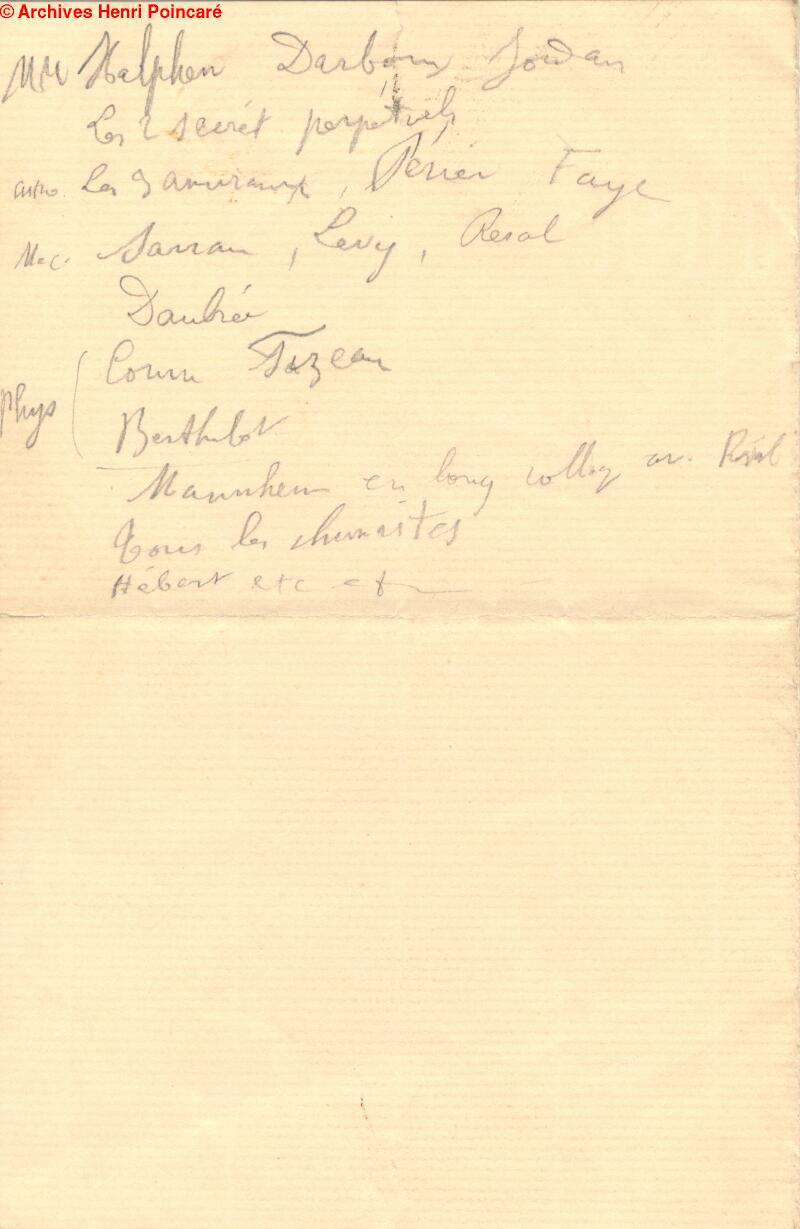 © Archives Henri Poincaré
MM Halphen Darboux Jordan
Les 2 secrét perpétuels
astro. Les 3 amiraux, Périer Faye
Mec. Sarrau, Levy, Resal
Daubrée
Phys Cornu Fizeau
Berthelot
Mannheim en long colloq av. Résal
Tous les chimistes
Hébert etc etc